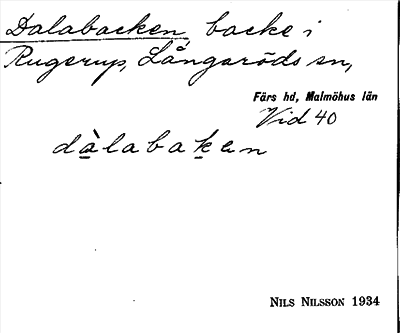 Dalabacken, backe i
Rugerup, Långaröds sn,
Färs hd, Malmöhus län
Vid 40
dàlabakɐn
NILS NILSSON 1934